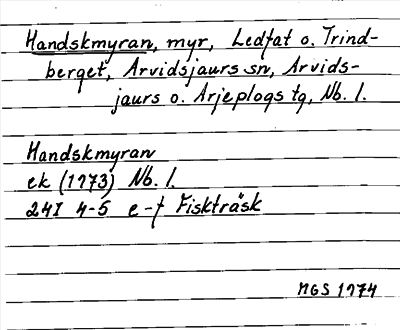 Handskmyran, myr, Ledfat o. Trind-
berget, Arvidsjaurs sn, Arvids-
jaurs o. Arjeplogs tg, Nb. l.
Handskmyran
ek (1973) Nb. l.
24I 4-5 e-f Fiskträsk
MGS 1974